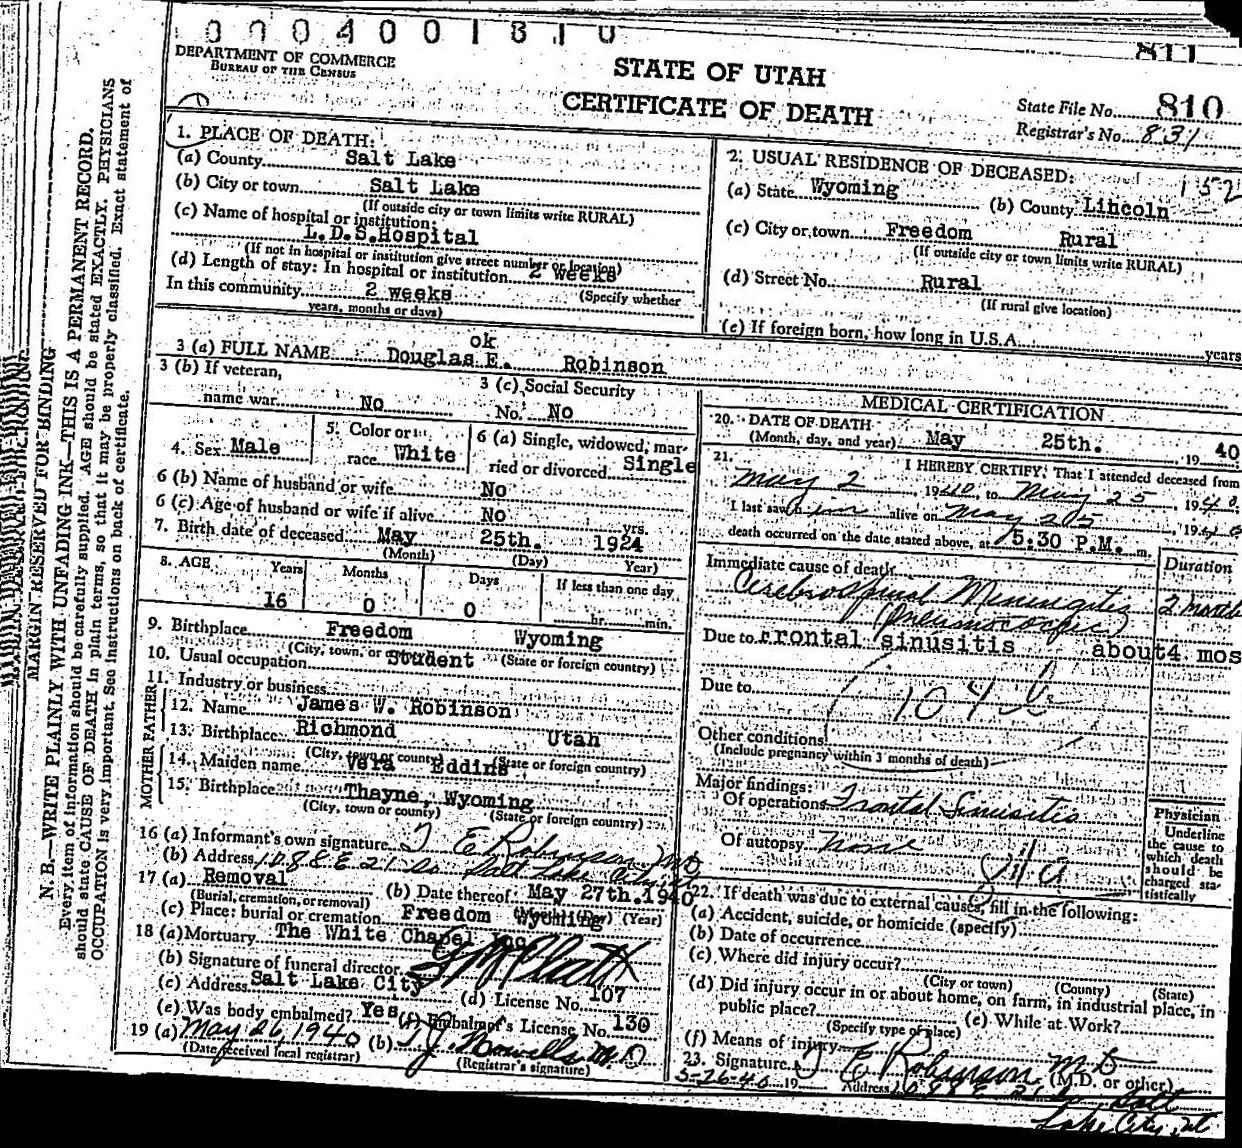 0004001810
811
DEPARTMENT OF COMMERCE
BUREAU OF THE CENSUS
STATE OF UTAH
CERTIFICATE OF DEATH
State File No. 810
Registrar's No. 831
1. PLACE OF DEATH:
(a) County Salt Lake
(b) City or town Salt Lake
(If outside city or town limits write RURAL)
(c) Name of hospital or institution:
L.D.S.Hospital
(If not in hospital or institution give street number or location)
(d) Length of stay: In hospital or institution 2 weeks
In this community 2 weeks (Specify whether
years, months or days)
2. USUAL RESIDENCE OF DECEASED: 152
(a) State Wyoming (b) County Lincoln
(c) City or town Freedom Rural
(If outside city or town limits write RURAL)
(d) Street No. Rural
(If rural give location)
(e) If foreign born, how long in U.S.A. years
ok
3 (a) FULL NAME Douglas E. Robinson
3 (b) If veteran,
name war No
3 (c) Social Security
No. No
4. Sex Male
5. Color or
race White
6 (a) Single, widowed, mar-
ried or divorced Single
6 (b) Name of husband or wife No
6 (c) Age of husband or wife if alive No yrs.
7. Birth date of deceased May 25th. 1924
(Month) (Day) Year)
8. AGE Years Months Days If less than one day
16 0 0 hr. min.
9. Birthplace Freedom Wyoming
(City, town, or county) (State or foreign country)
10. Usual occupation Student
11. Industry or business
FATHER
12. Name James W. Robinson
13. Birthplace Richmond Utah
(City, town or county) (State or foreign country)
MOTHER
14. Maiden name Vera Eddins
15. Birthplace Thayne, Wyoming
(City, town or county) (State or foreign country)
16 (a) Informant's own signature T E Robinson MD
(b) Address 1088 E 21 So Salt Lake City
17 (a) Removal (b) Date thereof May 27th.1940
(Burial, cremation, or removal) (Month) (Day) (Year)
(c) Place: burial or cremation Freedom Wyoming
18 (a) Mortuary The White Chapel Inc
(b) Signature of funeral director
(c) Address Salt Lake City (d) License No. 107
(e) Was body embalmed? Yes (f) Embalmer's License No. 130
19 (a) May 26, 1940 (b) T.J. Howells M.D
(Date received local registrar) (Registrar's signature)
MEDICAL CERTIFICATION
20. DATE OF DEATH
(Month, day, and year) May 25th. 19 40
21. I HEREBY CERTIFY, That I attended deceased from
May 2, 1940, to May 25, 1940,
I last saw him alive on May 25, 1940
death occurred on the date stated above, at 5:30 P.M. m.
Immediate cause of death Duration
Cerebrospinal Meningitis 2 months
(Pneumococcic)
Due to Frontal sinusitis about4 mos
Due to 104 b
Other conditions
(Include pregnancy within 3 months of death)
Major findings:
Of operations Frontal Sinusitis
Of autopsy None
Physician
Underline
the cause to
which death
should be
charged sta-
tistically
22. If death was due to external causes, fill in the following:
(a) Accident, suicide, or homicide (specify)
(b) Date of occurrence
(c) Where did injury occur?
(City or town) (County) (State)
(d) Did injury occur in or about home, on farm, in industrial place, in
public place? (e) While at Work?
(Specify type of place)
(f) Means of injury
23. Signature T E Robinson M D (M.D. or other)
5-26-40 19 Address 1088 E 21 So Salt
Lake City, Ut
MARGIN RESERVED FOR BINDING
N. B.—WRITE PLAINLY, WITH UNFADING INK—THIS IS A PERMANENT RECORD.
Every item of information should be carefully supplied. AGE should be stated EXACTLY. PHYSICIANS
should state CAUSE OF DEATH in plain terms, so that it may be properly classified. Exact statement of
OCCUPATION is very important. See instructions on back of certificate.